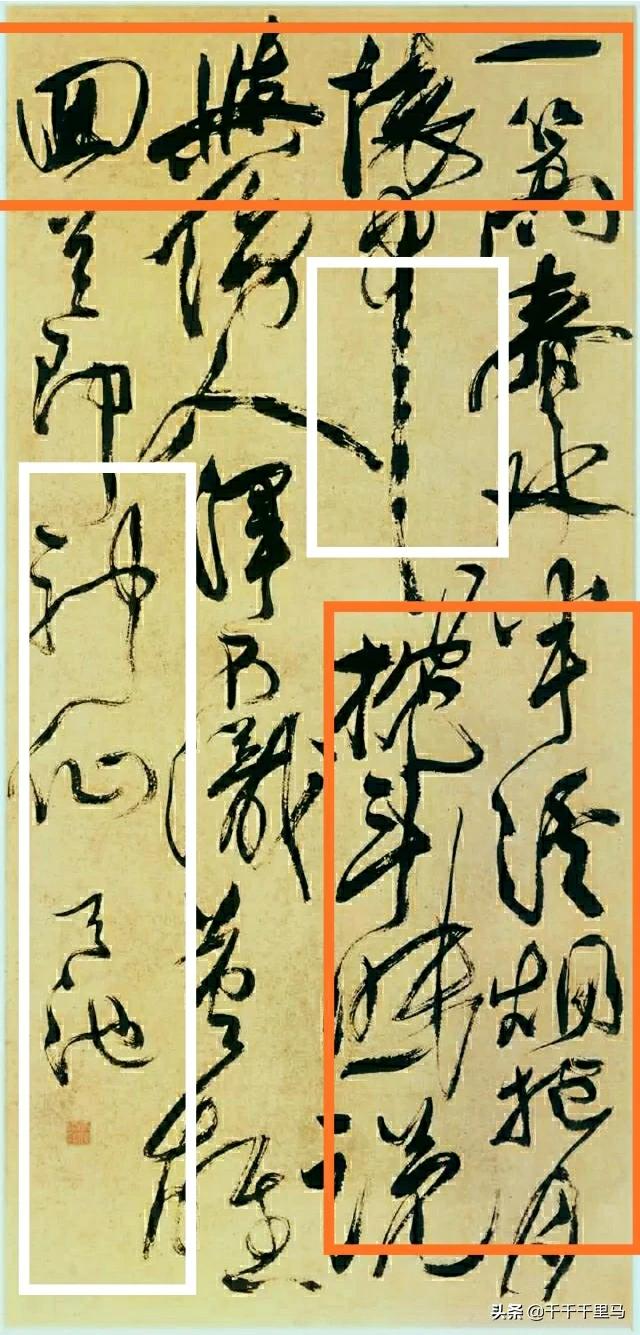 一篙春水半溪烟抱月
懷中枕斗眠說
與傍人渾不識英雄
回首即神仙
天池
头条 @千千千里马